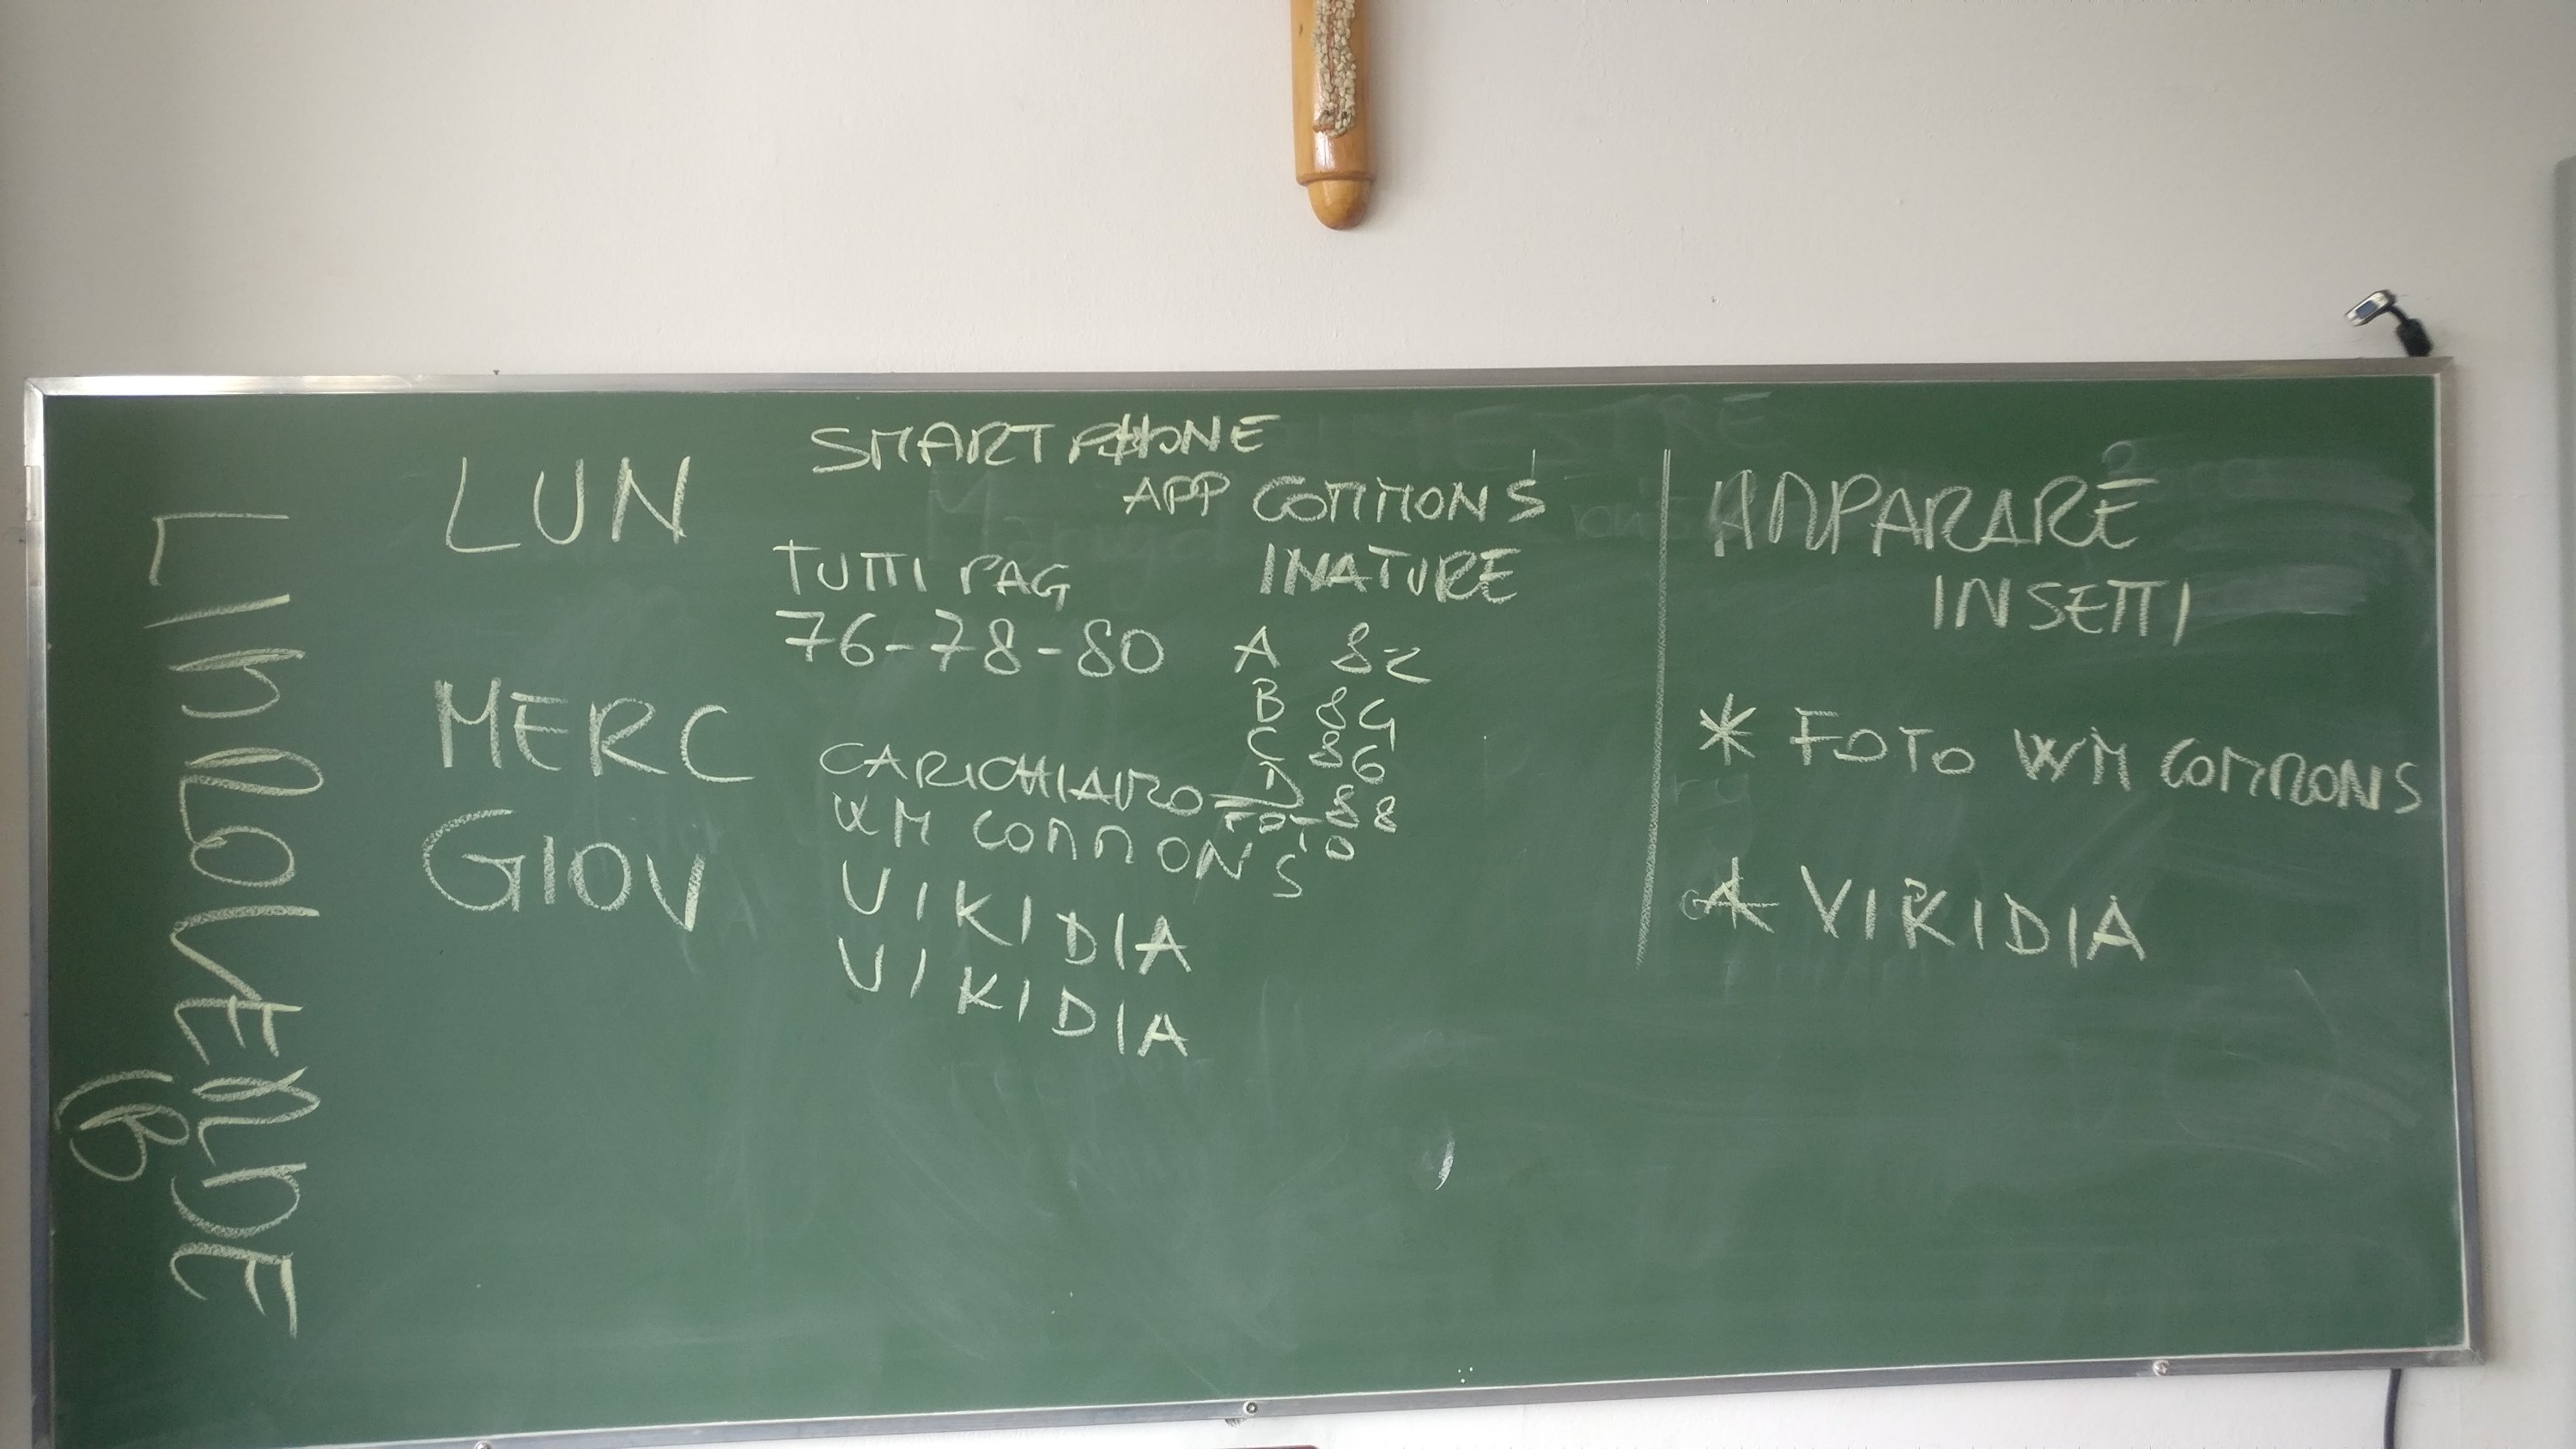 LUN
SMARTPHONE
APP COMMONS
INATURE
TUTTI PAG
76-78-80
A 82
B 84
C 86
D 88
MERC
CARICHIAMO FOTO
WM COMMONS
GIOV
VIKIDIA
VIKIDIA
IMPARARE
INSETTI
* FOTO WM COMMONS
* VIKIDIA